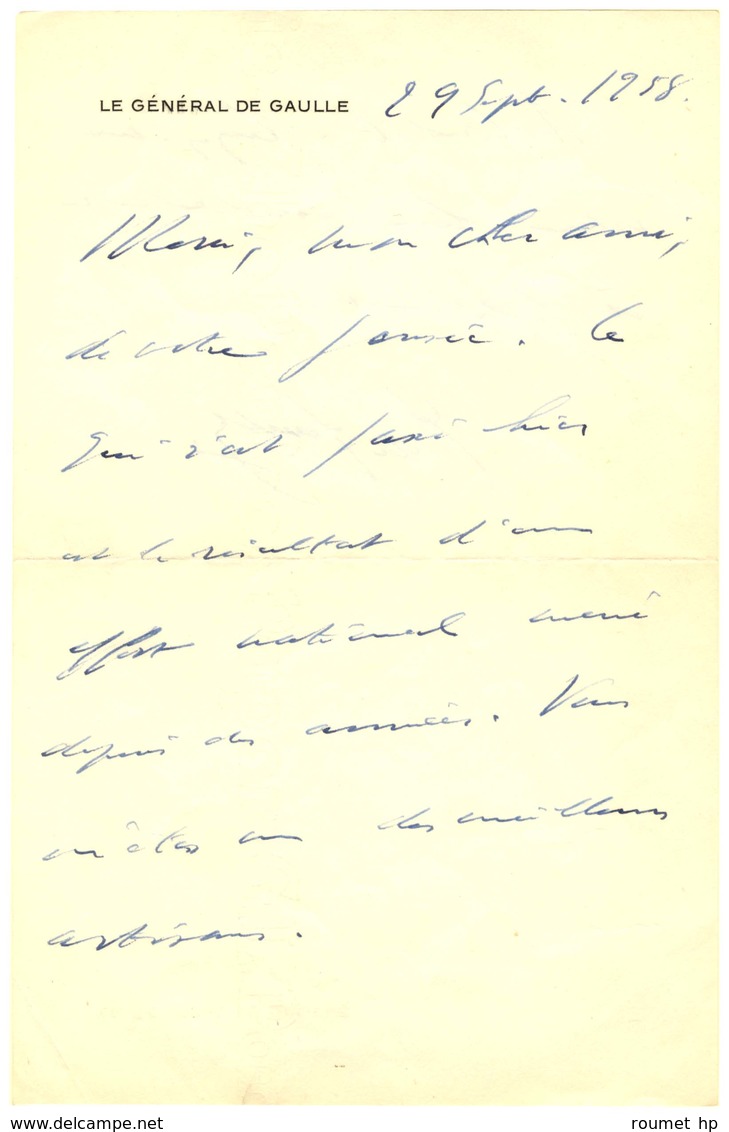 LE GÉNÉRAL DE GAULLE 29 Sept. 1958.
Merci, mon cher ami,
de votre pensée. Ce
qui s'est passé hier
est le résultat d'un
effort national mené
depuis des années. Vous
en êtes un des meilleurs
artisans.
www.delcampe.net
roumet hp